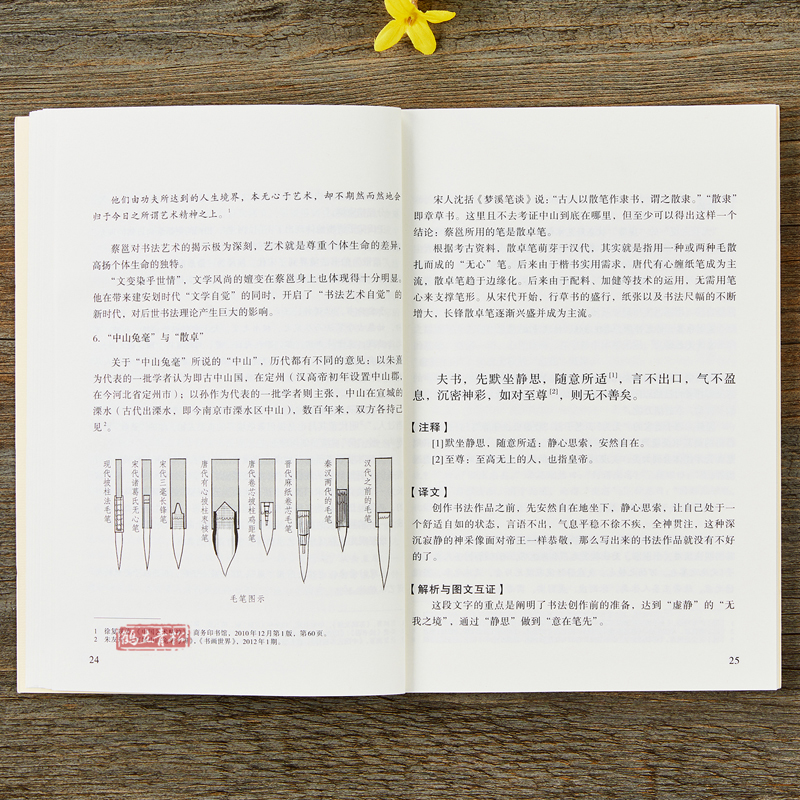 他们由功夫所达到的人生境界，本无心于艺术，却不期然而然地会
归于今日之所谓艺术精神之上。1
蔡邕对书法艺术的揭示极为深刻，艺术就是尊重个体生命的差异，
高扬个体生命的独特。
“文变染乎世情”，文学风尚的嬗变在蔡邕身上也体现得十分明显。
他在带来建安划时代“文学自觉”的同时，开启了“书法艺术自觉”的
新时代，对后世书法理论产生巨大的影响。
6. “中山兔毫”与“散卓”
关于“中山兔毫”所说的“中山”，历代都有不同的意见：以朱直
为代表的一批学者认为即古中山国，在定州（汉高帝初年设置中山郡，
在今河北省定州市）；以孙作为代表的一批学者则主张，中山在宣城的
溧水（古代出溧水，即今南京市溧水区中山），数百年来，双方各持己
见2。
现代披柱法毛笔
宋代诸葛氏无心笔
宋代三毫长锋笔
唐代有心披柱枣核笔
唐代卷芯披柱鸡距笔
晋代麻纸卷芯毛笔
秦汉两代的毛笔
汉代之前的毛笔
毛笔图示
1 徐复
商务印书馆，2010年12月第1版，第60页。
2 朱友
，《书画世界》，2012年1期。
鹤立青松
24
宋人沈括《梦溪笔谈》说：“古人以散笔作隶书，谓之散隶。”“散隶”
即章草书。这里且不去考证中山到底在哪里，但至少可以得出这样一个
结论：蔡邕所用的笔是散卓笔。
根据考古资料，散卓笔萌芽于汉代，其实就是指用一种或两种毛散
扎而成的“无心”笔。后来由于楷书实用需求，唐代有心缠纸笔成为主
流，散卓笔趋于边缘化。后来由于配料、加健等技术的运用，无需用笔
心来支撑笔形。从宋代开始，行草书的盛行，纸张以及书法尺幅的不断
增大，长锋散卓笔逐渐兴盛并成为主流。
夫书，先默坐静思，随意所适[1]，言不出口，气不盈
息，沉密神彩，如对至尊[2]，则无不善矣。
【注释】
[1]默坐静思，随意所适：静心思索，安然自在。
[2]至尊：至高无上的人，也指皇帝。
【译文】
创作书法作品之前，先安然自在地坐下，静心思索，让自己处于一
个舒适自如的状态，言语不出，气息平稳不徐不疾，全神贯注，这种深
沉寂静的神采像面对帝王一样恭敬，那么写出来的书法作品就没有不好
的了。
【解析与图文互证】
这段文字的重点是阐明了书法创作前的准备，达到“虚静”的“无
我之境”，通过“静思”做到“意在笔先”。
25